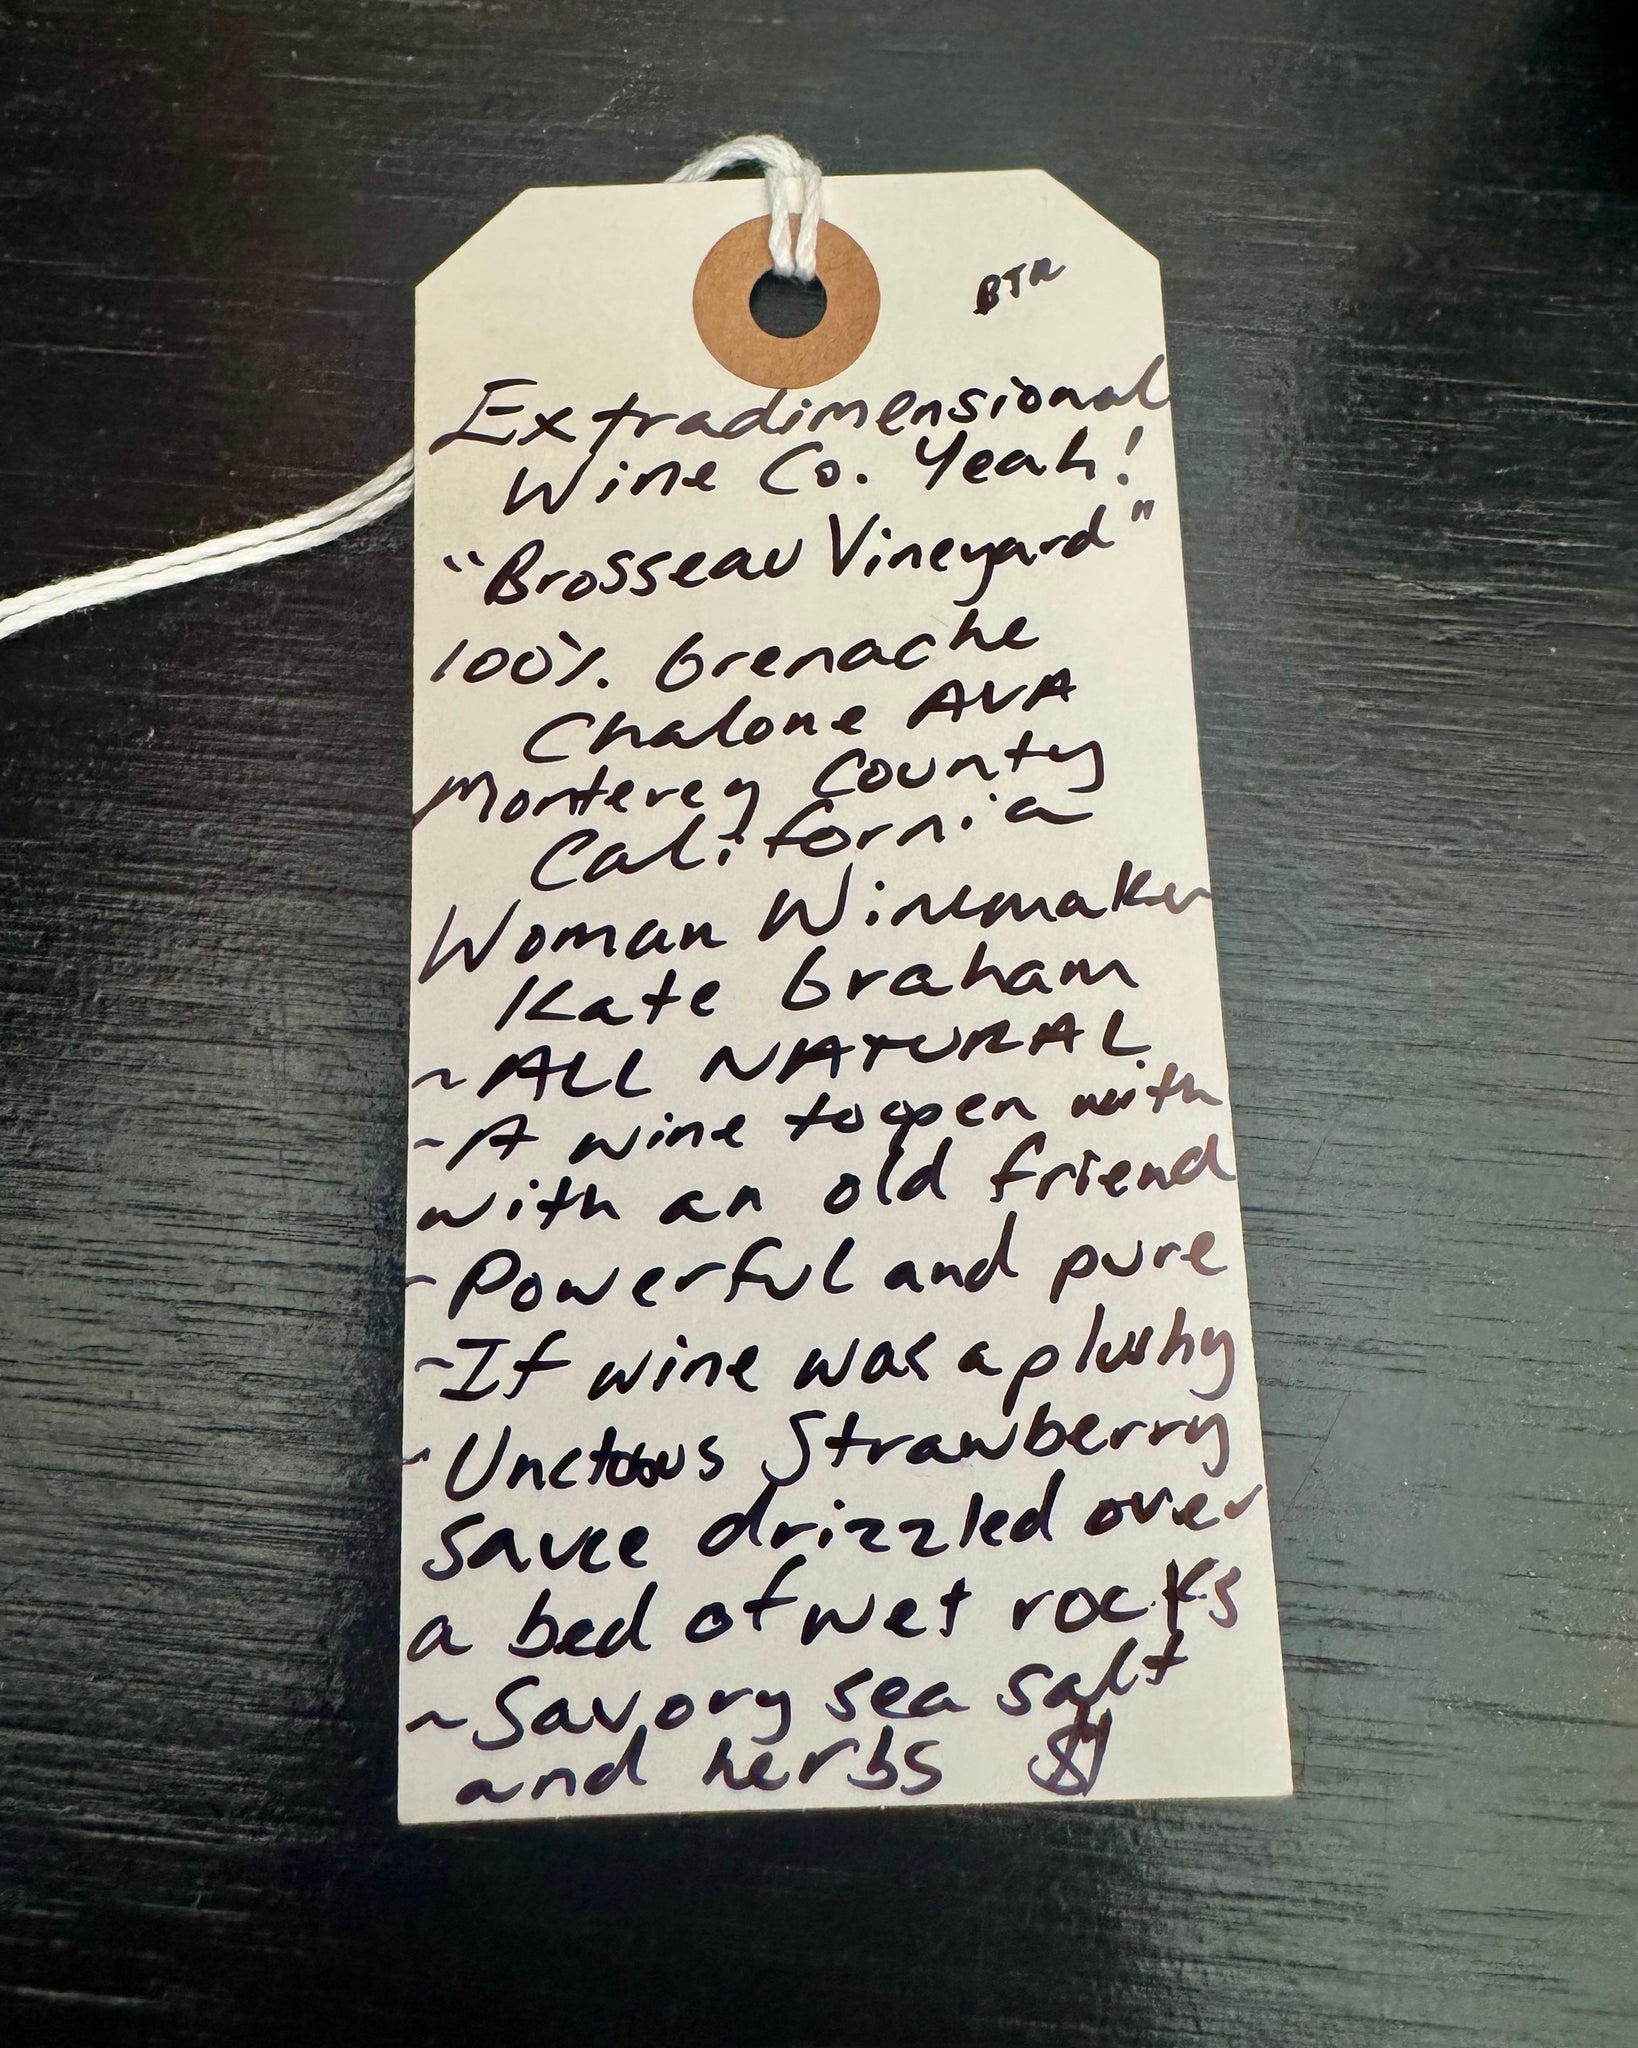 BTR
Extradimensional
Wine Co. Yeah!
"Brosseau Vineyard"
100% Grenache
Chalone AVA
Monterey County
California
Woman Winemaker
Kate Graham
~ALL NATURAL
~A wine to open with
with an old friend
~Powerful and pure
~If wine was a plushy
~Unctous Strawberry
sauce drizzled over
a bed of wet rocks
~Savory sea salt
and herbs